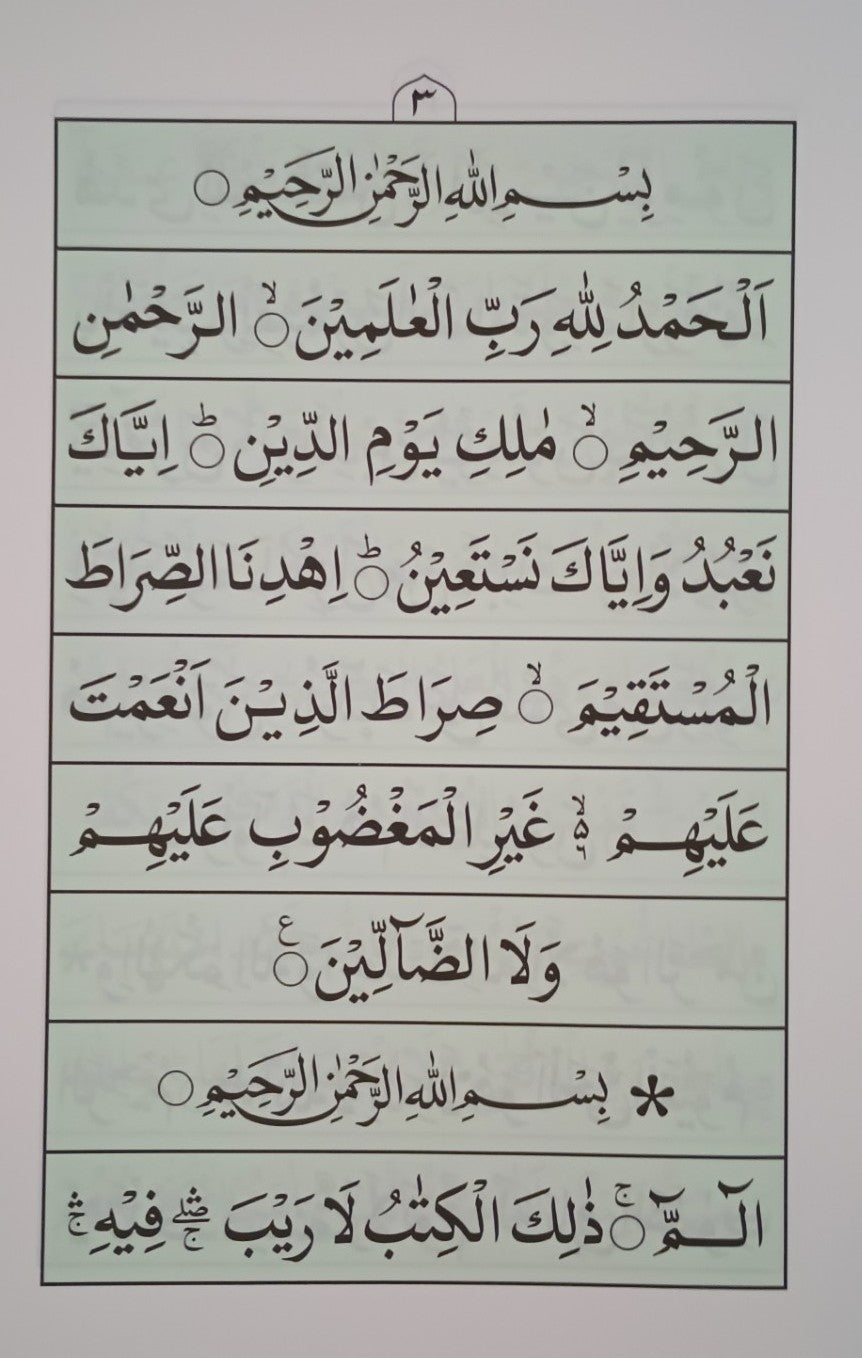 ٣
بِسْمِ اللهِ الرَّحْمٰنِ الرَّحِيْمِ ○
اَلْحَمْدُ لِلّٰهِ رَبِّ الْعٰلَمِيْنَ ○ۙ الرَّحْمٰنِ
الرَّحِيْمِ ○ۙ مٰلِكِ يَوْمِ الدِّيْنِ ○ؕ اِيَّاكَ
نَعْبُدُ وَاِيَّاكَ نَسْتَعِيْنُ ○ؕ اِهْدِنَا الصِّرَاطَ
الْمُسْتَقِيْمَ ○ۙ صِرَاطَ الَّذِيْنَ اَنْعَمْتَ
عَلَيْهِمْ ۙ۵ غَيْرِ الْمَغْضُوْبِ عَلَيْهِمْ
وَلَا الضَّآلِّيْنَ ○ع
* بِسْمِ اللهِ الرَّحْمٰنِ الرَّحِيْمِ ○
الٓمّٓ ○ۚ ذٰلِكَ الْكِتٰبُ لَا رَيْبَ ۛۖۚ فِيْهِ ۛۚ